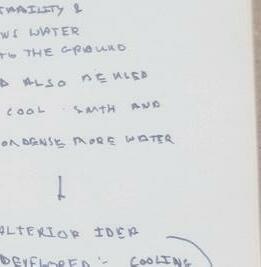 STABILITY &
WS WATER
TO THE GROUND
D ALSO BE USED
COOL AND
ONDENSE MORE WATER
↓
ALTERIOR IDEA
DEVELOPED :- COOLING